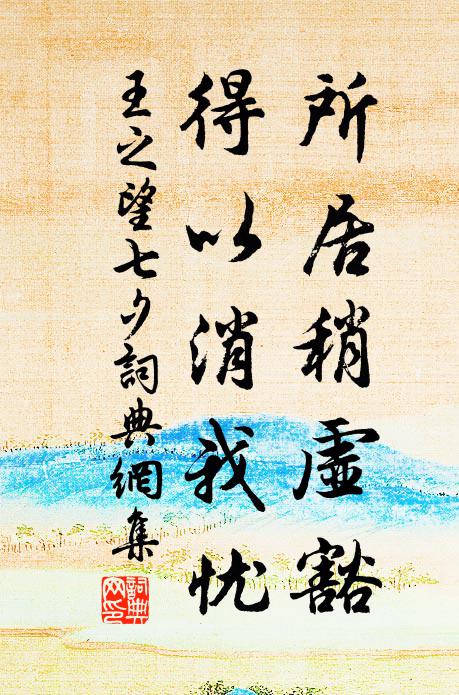 所居稍虛豁
得以消我忧
王之望七夕詞典網集
詞典网印